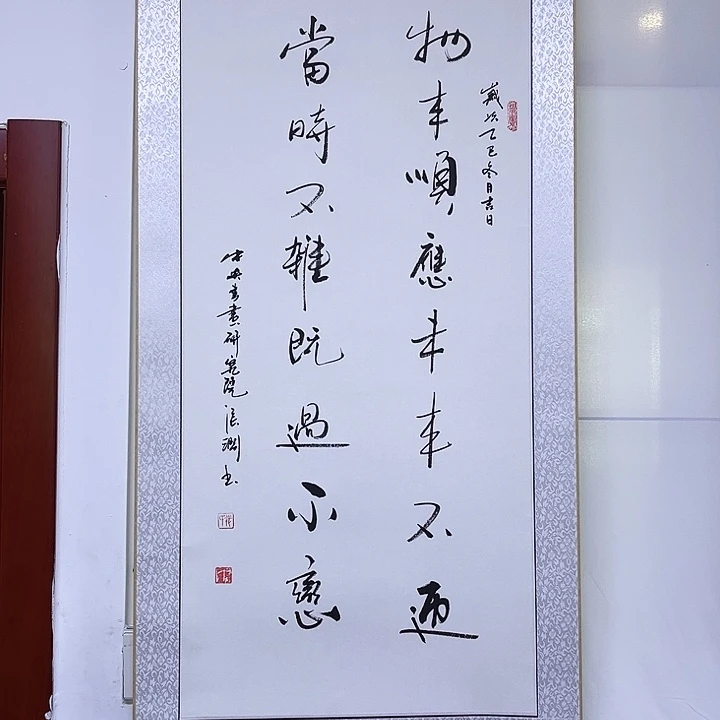 物来順應未来不迎
歲次乙巳冬月吉日
當時不雜既過不戀
中央書畫研究院張書